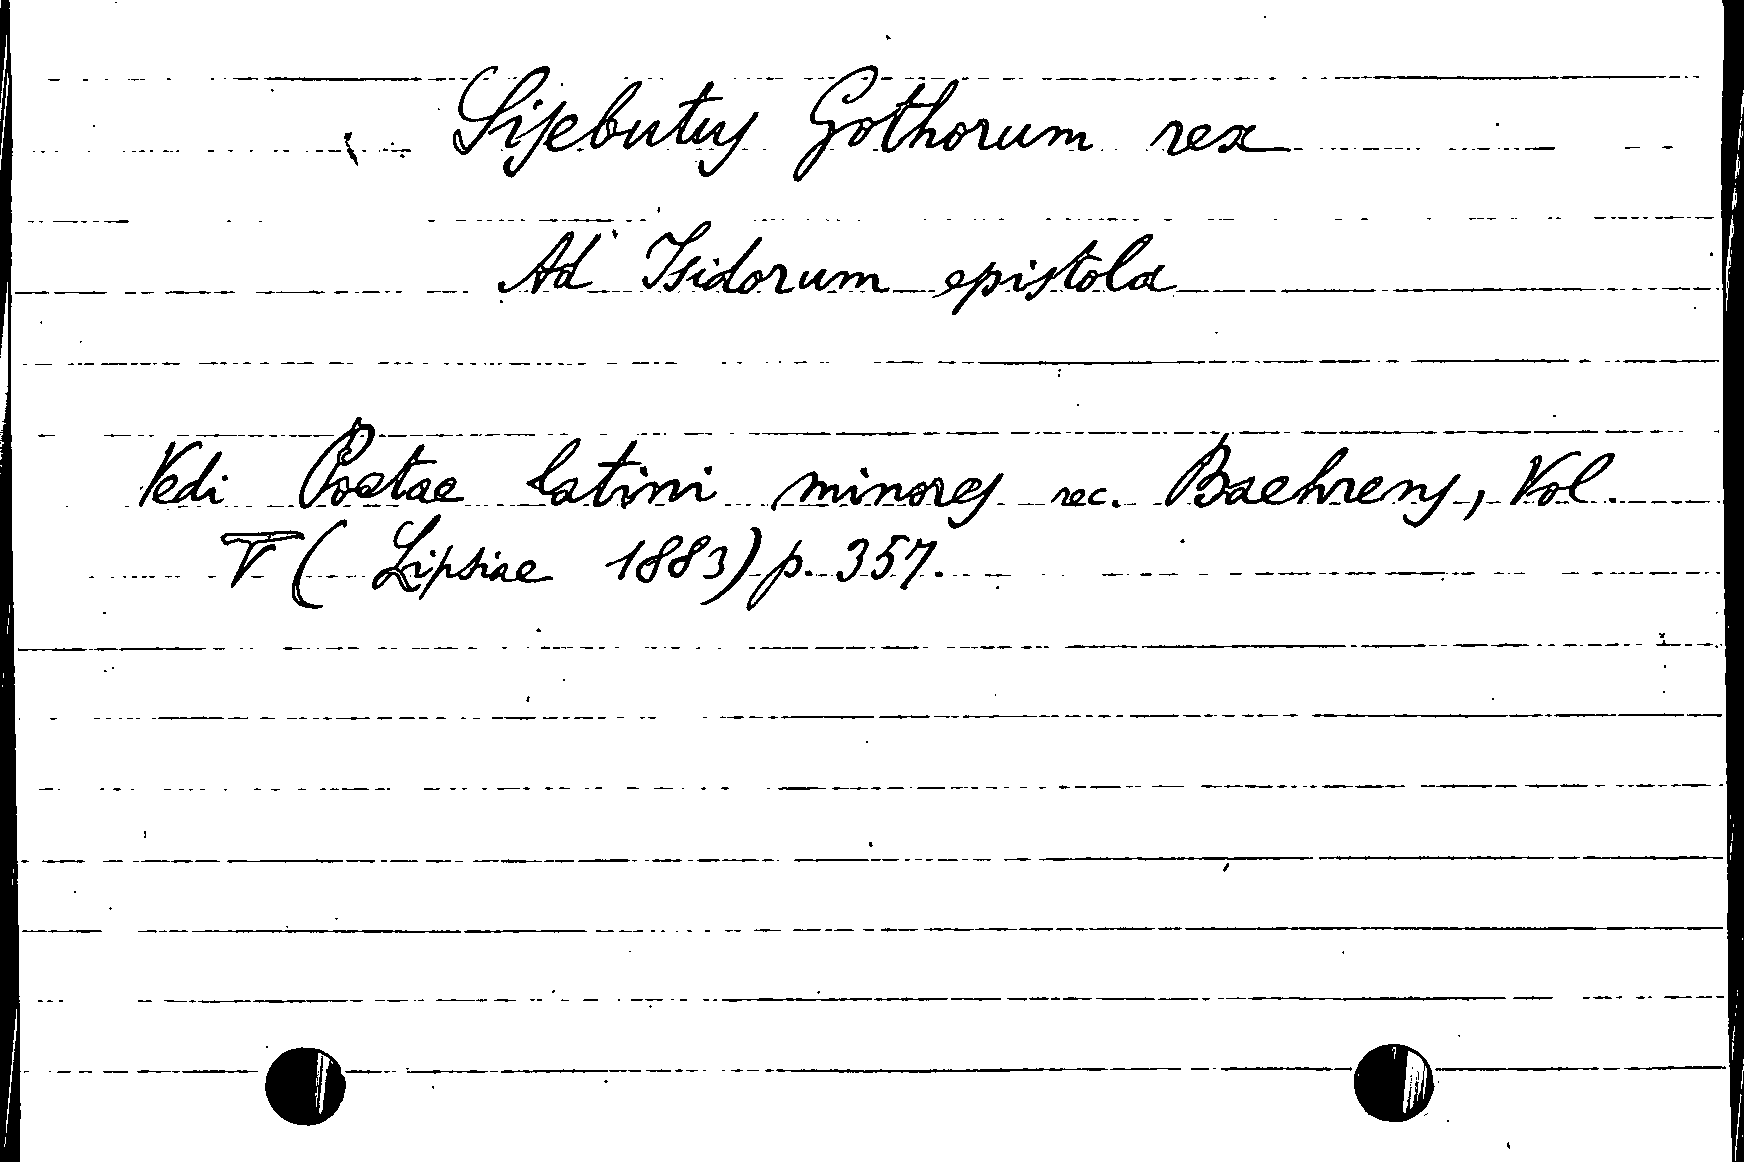 Sisebutus Gothorum rex
Ad Isidorum epistola
Vedi Poetae latini minores rec. Baehrens, Vol.
V (Lipsiae 1883) p. 357.